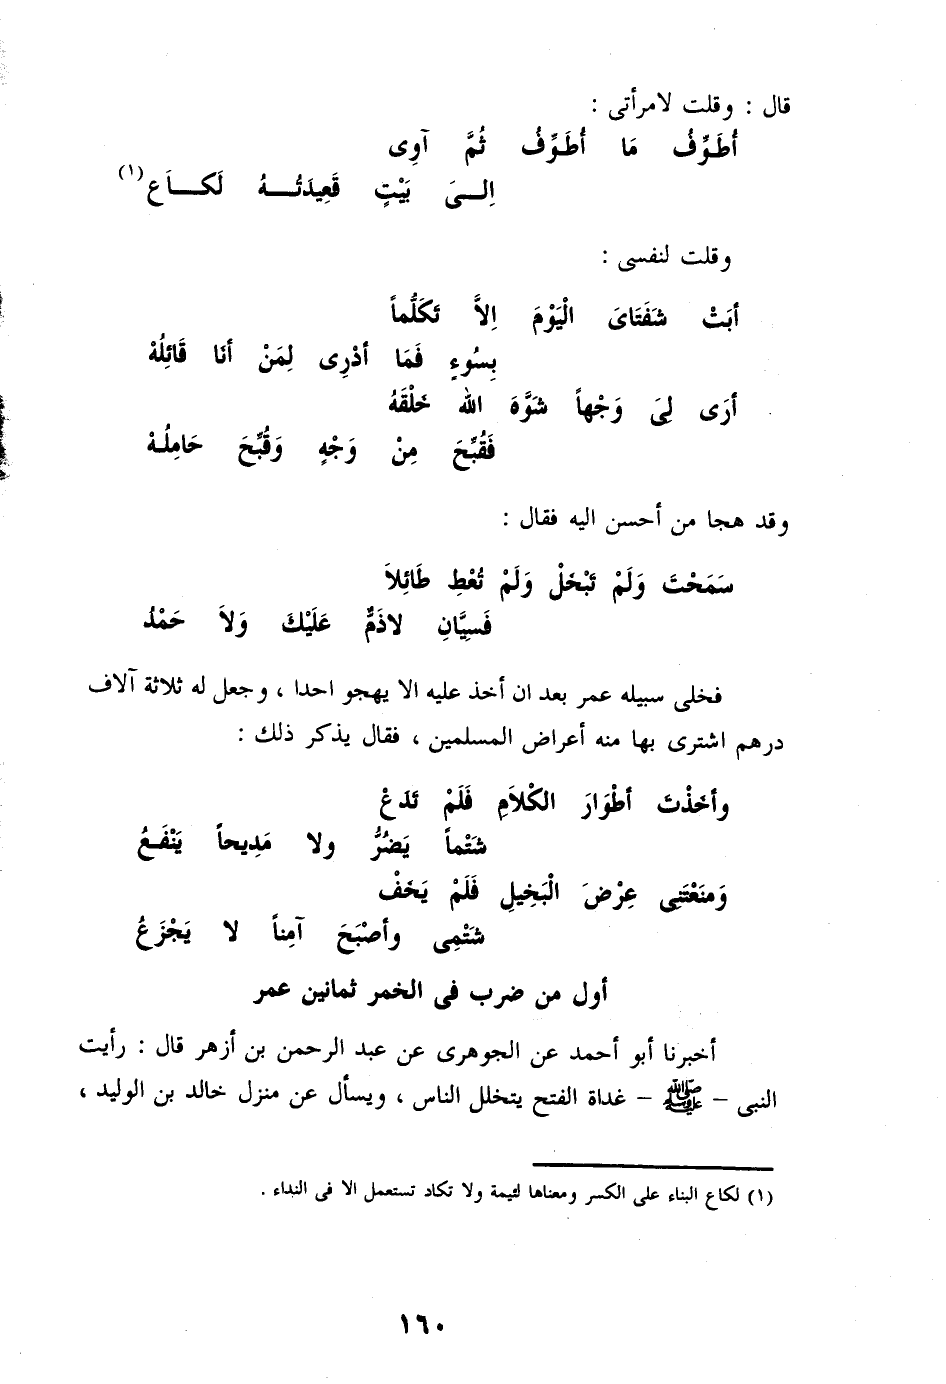 قال : وقلت لامرأتى :
أُطَوِّفُ مَا أُطَوِّفُ ثُمَّ آوِى
اِلـــىَ بَيْتٍ قَعِيدَتُـــهُ لَكـــاَعِ(١)
وقلت لنفسى :
أبَتْ شَفَتَاىَ الْيَوْمَ اِلاَّ تَكَلُّماً
بِسُوءٍ فَمَا أدْرِى لِمَنْ أنَا قَائِلُهْ
أرَى لِىَ وَجْهاً شَوَّهَ الله خَلْقَهُ
فَقُبِّحَ مِنْ وَجْهٍ وَقُبِّحَ حَامِلُـهْ
وقد هجا من أحسن اليه فقال :
سَمَحْتَ وَلَمْ تَبْخَلْ وَلَمْ تُعْطِ طَائِلاَ
فَسِيَّانِ لاذَمٌّ عَلَيْكَ وَلاَ حَمْدُ
فخلى سبيله عمر بعد ان أخذ عليه الا يهجو احدا ، وجعل له ثلاثة آلاف
درهم اشترى بها منه أعراض المسلمين ، فقال يذكر ذلك :
وأخَذْتَ أطْوَارَ الكْلاَمِ فَلَمْ تَدَعْ
شَتْماً يَضُرُّ ولا مَدِيحاً يَنْفَـعُ
وَمنَعْتَنِى عِرْضَ الْبَخِيلِ فَلَمْ يَخَفْ
شَتْمِى وأصْبَحَ آمِناً لا يَجْزَعُ
أول من ضرب فى الخمر ثمانين عمر
أخبرنا أبو أحمد عن الجوهرى عن عبد الرحمن بن أزهر قال : رأيت
النبى – ﷺ – غداة الفتح يتخلل الناس ، ويسأل عن منزل خالد بن الوليد ،
(١) لكاع البناء على الكسر ومعناها لئيمة ولا تكاد تستعمل الا فى النداء .
١٦٠